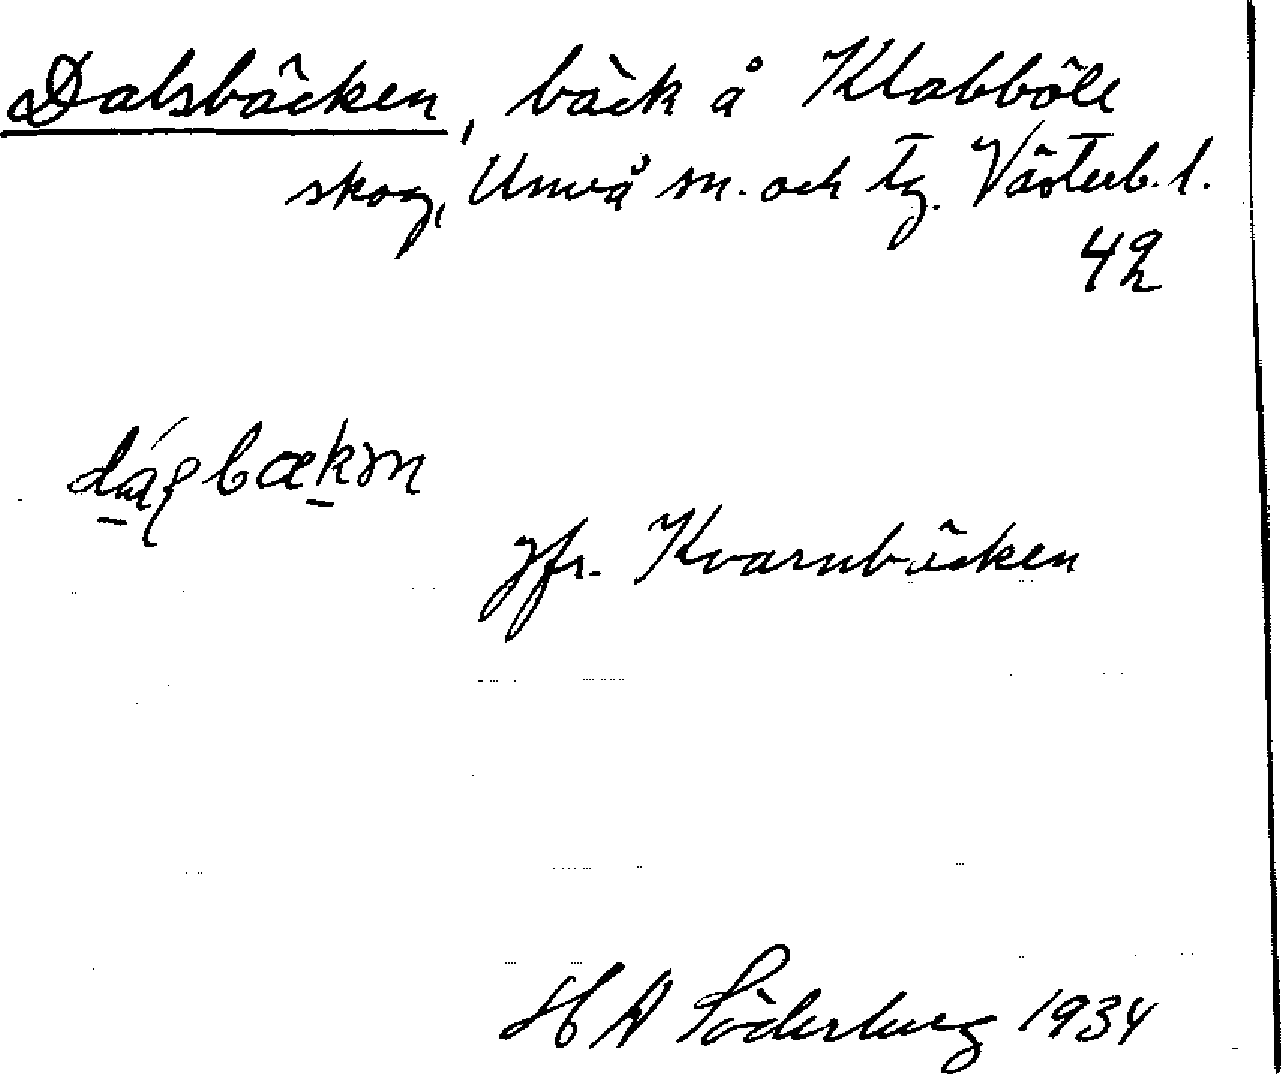 Dalsbäcken, bäck å Klabböle
skog, Umeå sn. och tg. Västerb. l.
42
jfr. Kvarnbäcken
H A Söderberg 1934